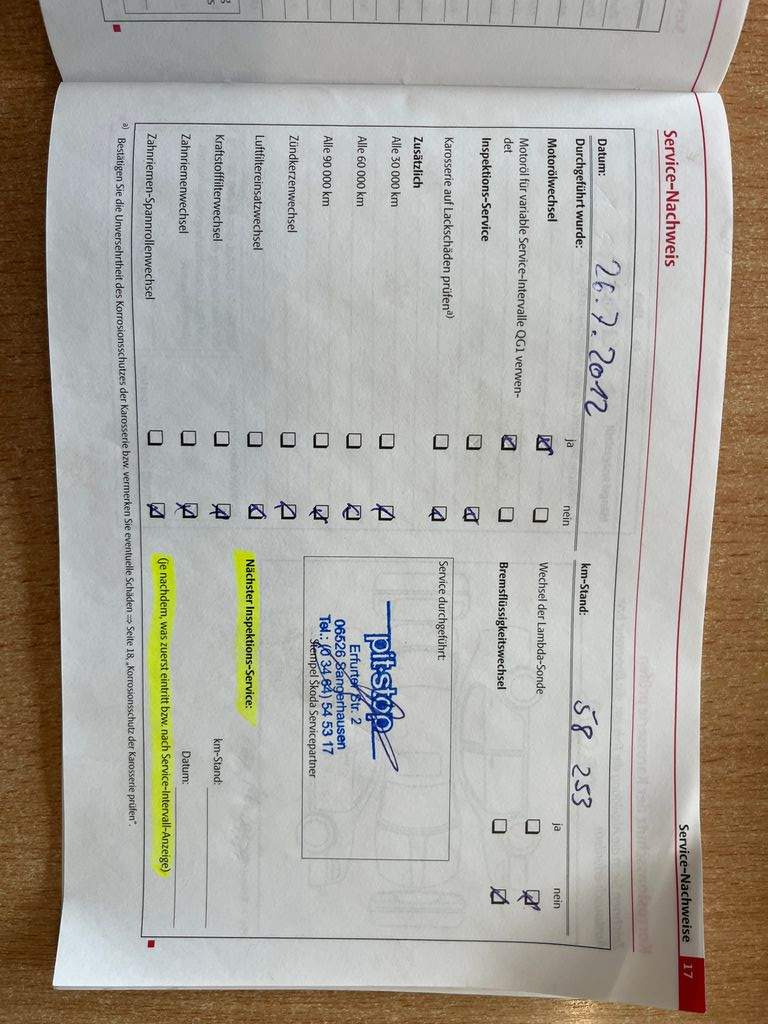 Service-Nachweise 17
Service-Nachweis
Datum: 26.7.2012
km-Stand: 58 253
Durchgeführt wurde:
ja nein
ja nein
Motorölwechsel
Motoröl für variable Service-Intervalle QG1 verwen-
det
Inspektions-Service
Karosserie auf Lackschäden prüfen a)
Zusätzlich
Alle 30 000 km
Alle 60 000 km
Alle 90 000 km
Zündkerzenwechsel
Luftfiltereinsatzwechsel
Kraftstofffilterwechsel
Zahnriemenwechsel
Zahnriemen-Spannrollenwechsel
Wechsel der Lambda-Sonde
Bremsflüssigkeitswechsel
Service durchgeführt:
pit-stop
Erfurter Str. 2
06526 Sangerhausen
Tel.: (0 34 64) 54 53 17
Stempel Škoda Servicepartner
Nächster Inspektions-Service:
km-Stand:
Datum:
(je nachdem, was zuerst eintritt bzw. nach Service-Intervall-Anzeige)
a) Bestätigen Sie die Unversehrtheit des Korrosionsschutzes der Karosserie bzw. vermerken Sie eventuelle Schäden ⇒ Seite 18, „Korrosionsschutz der Karosserie prüfen“.